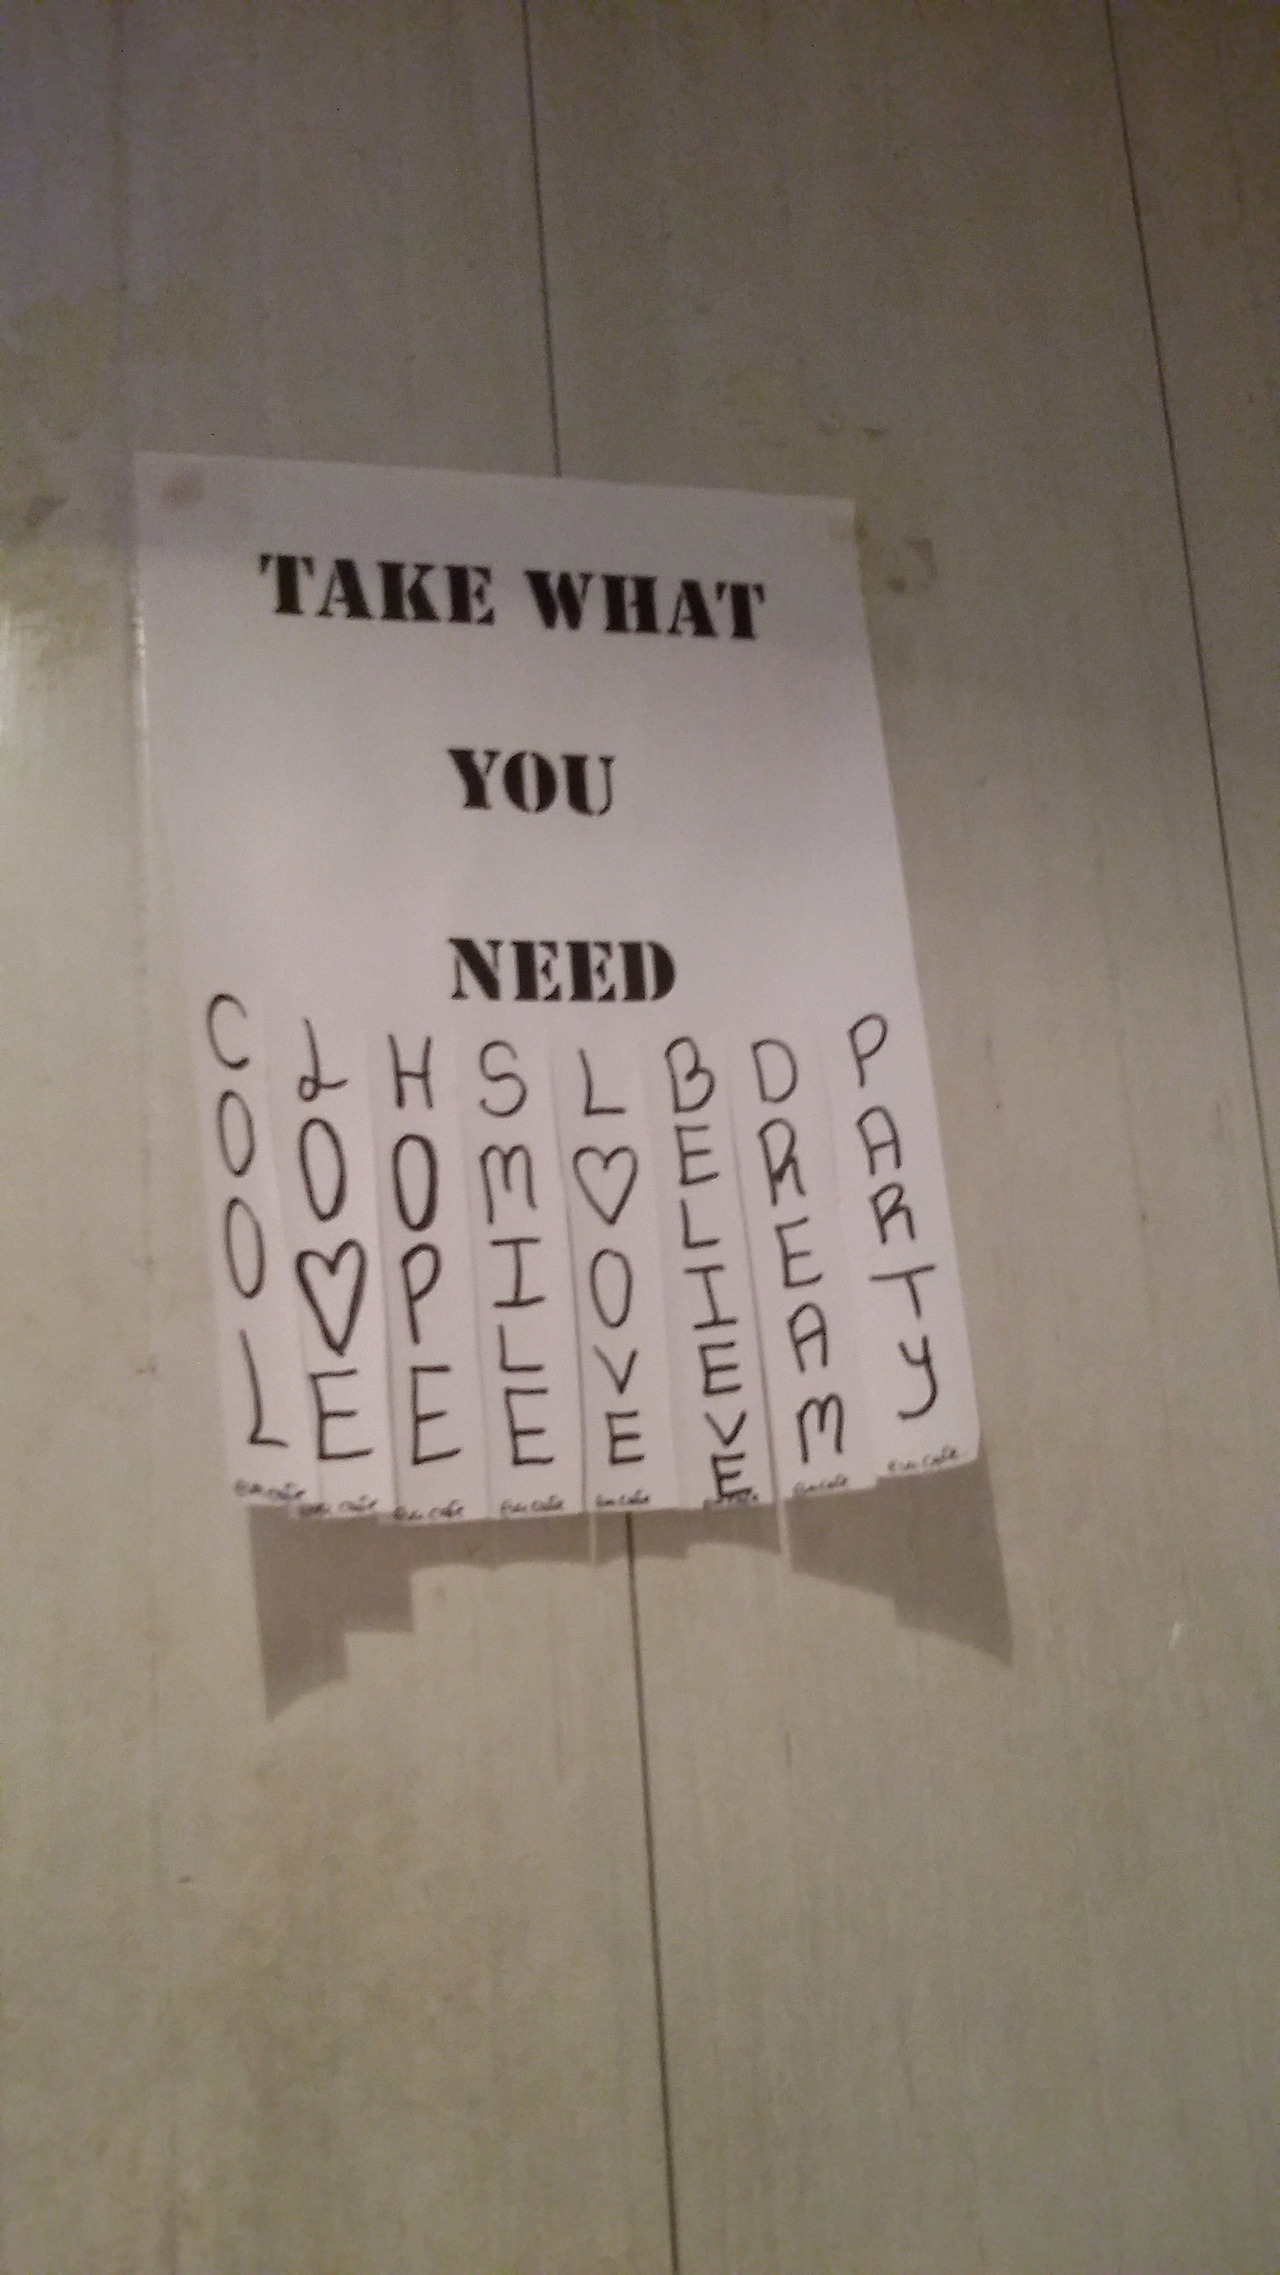 TAKE WHAT
YOU
NEED
COOL
LO♡E
HOPE
SMILE
L♡OVE
BELIEVE
DREAM
PARTY